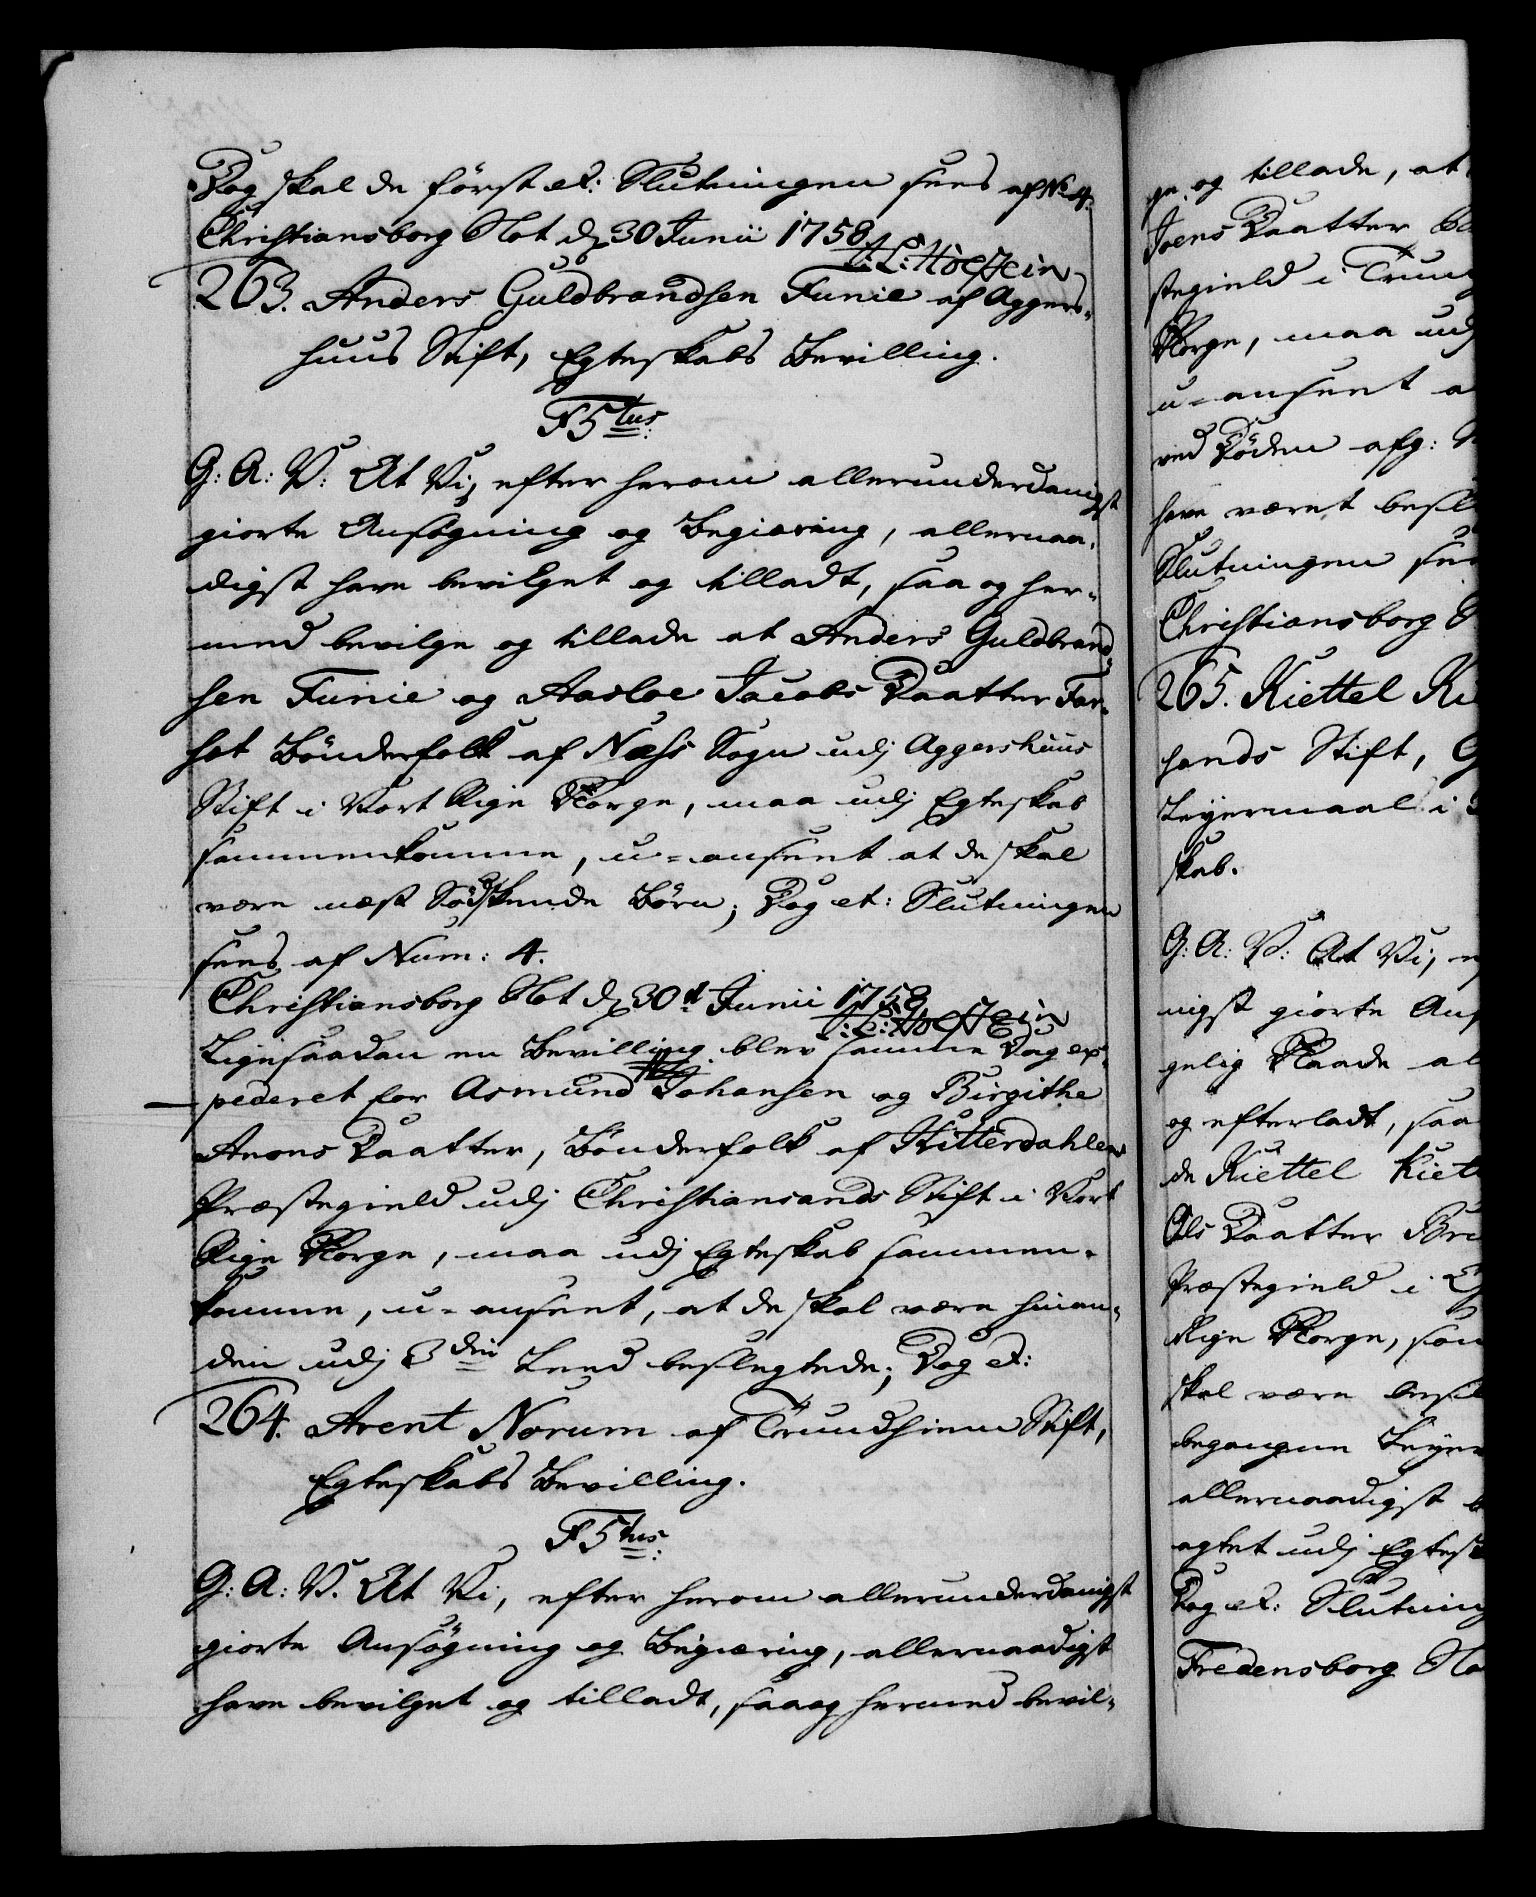 Dog skal de först et: Slutningen sees af No 4.
Christiansborg Slot d. 30 Junii 1758
C: L: Holstein
263. Anders Guldbrandsen Funie af Aggers-
huus Stift, Egteskabs Bevilling.
F5tus:
G: A: V: At Vi, efter herom allerunderdanigst
giorte Ansögning og Begiæring, allernaa-
digst have bevilget og tilladt, saa og her-
med bevilge og tillade at Anders Guldbrand-
sen Funie og Aasloe Jacobs Daatter For-
set Bönderfolk af Næss Sogn udj Aggershuus
Stift i Vort Rige Norge, maa udj Egteskab
sammenkomme, u-anseet at de skal
være næst Södskende Börn; Dog et: Slutningen
sees af Num: 4.
Christiansborg Slot d. 30t Junii 1758
C: L: Holstein
Ligesaadan en Bevilling blev samme Dag ex-
pederet for Asmund Johansen og Birgithe
Anons Daatter, Bönderfolk af Hitterdahlen
Præstegield udj Christiansands Stift i Vort
Rige Norge, maa udj Egteskab sammen-
komme, u-anseet, at de skal være hinan-
den udj 3die Leed beslegtede; Dog et:
264. Arent Norum af Trundhiem Stift,
Egteskabs Bevilling.
F5tus:
G: A: V. At Vi, efter herom allerunderdanigst
giorte Ansögning og Begiæring, allernaadigst
have bevilget og tilladt, saa og hermed bevil-
ge og tillade, at
Joens Daatter
stegield i Trun
Norge, maa udj
u-anseet a
ved Döden afg:
have været besl
Slutningen see
Christiansborg S
265. Kiettel Ki
sands Stift,
Leyermaal i
skab.
G: A: V: At Vi, e
nigst giorte Ans
gelig Naade al
og efterladt, saa
de Kiettel Kiet
Ols Daatter Bru
Præstegield i
Rige Norge, som
skal være besl
begangne Leyer
allernaadigst b
agtet udj Egtesk
Dog et: Slutning
Fredensborg Slo